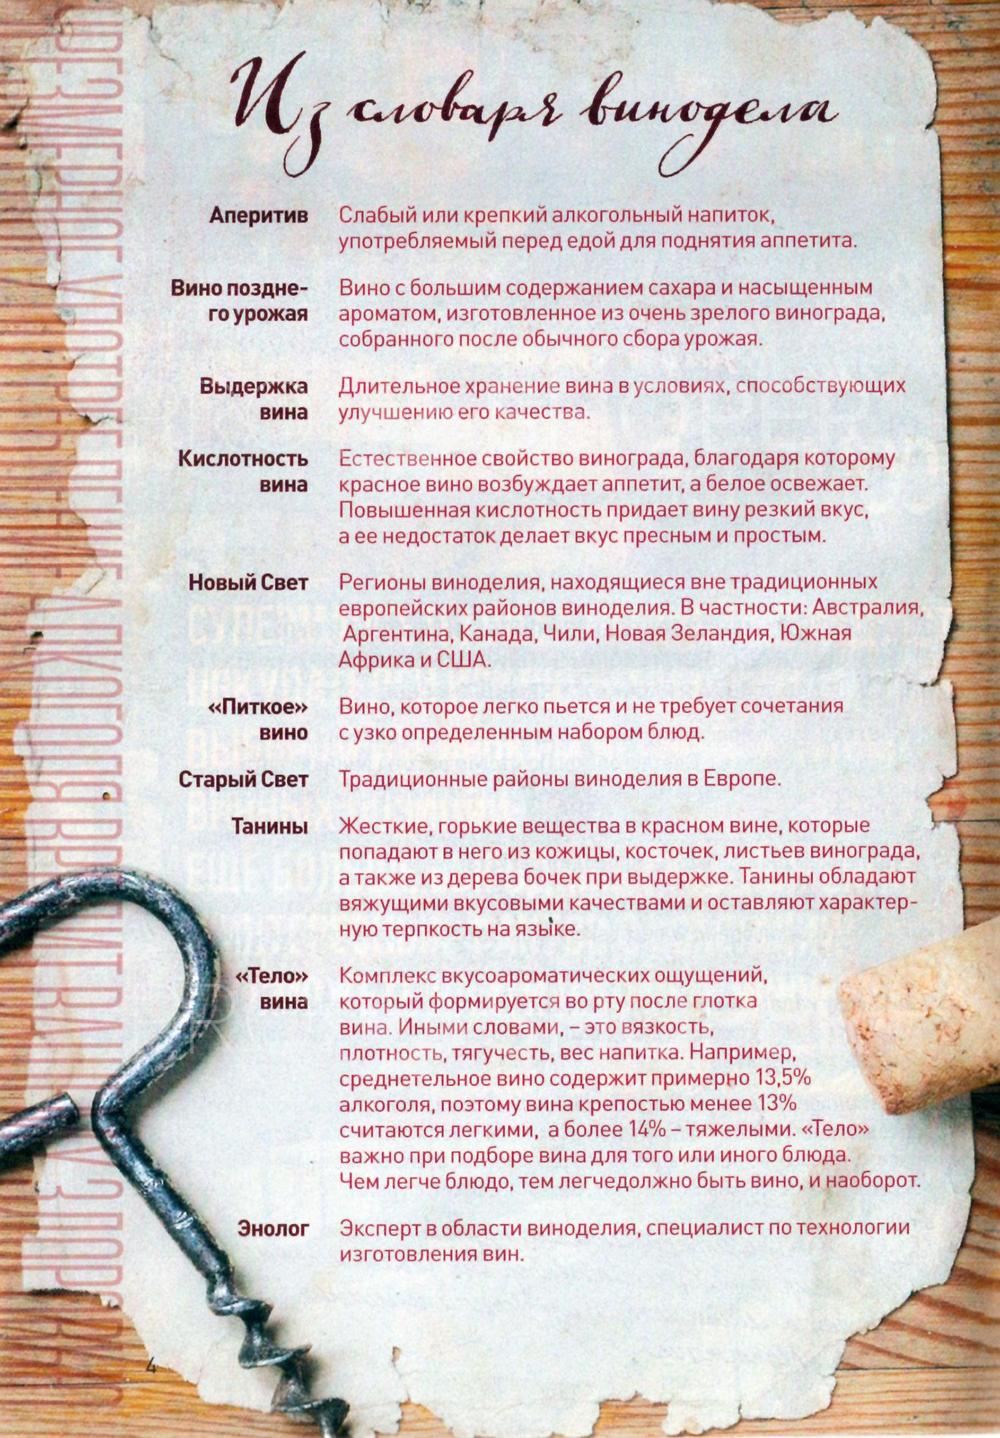 Из словаря винодела
Аперитив
Слабый или крепкий алкогольный напиток,
употребляемый перед едой для поднятия аппетита.
Вино поздне-
го урожая
Вино с большим содержанием сахара и насыщенным
ароматом, изготовленное из очень зрелого винограда,
собранного после обычного сбора урожая.
Выдержка
вина
Длительное хранение вина в условиях, способствующих
улучшению его качества.
Кислотность
вина
Естественное свойство винограда, благодаря которому
красное вино возбуждает аппетит, а белое освежает.
Повышенная кислотность придает вину резкий вкус,
а ее недостаток делает вкус пресным и простым.
Новый Свет
Регионы виноделия, находящиеся вне традиционных
европейских районов виноделия. В частности: Австралия,
Аргентина, Канада, Чили, Новая Зеландия, Южная
Африка и США.
«Питкое»
вино
Вино, которое легко пьется и не требует сочетания
с узко определенным набором блюд.
Старый Свет
Традиционные районы виноделия в Европе.
Танины
Жесткие, горькие вещества в красном вине, которые
попадают в него из кожицы, косточек, листьев винограда,
а также из дерева бочек при выдержке. Танины обладают
вяжущими вкусовыми качествами и оставляют характер-
ную терпкость на языке.
«Тело»
вина
Комплекс вкусоароматических ощущений,
который формируется во рту после глотка
вина. Иными словами, – это вязкость,
плотность, тягучесть, вес напитка. Например,
среднетельное вино содержит примерно 13,5%
алкоголя, поэтому вина крепостью менее 13%
считаются легкими, а более 14% – тяжелыми. «Тело»
важно при подборе вина для того или иного блюда.
Чем легче блюдо, тем легчедолжно быть вино, и наоборот.
Энолог
Эксперт в области виноделия, специалист по технологии
изготовления вин.
4